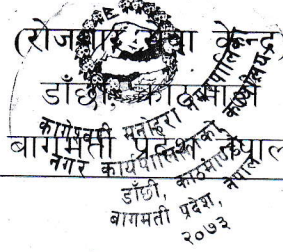 (रोजगार सेवा केन्द्र)
डाँछी, काठमाडौं
बागमती प्रदेश, नेपाल
कागेश्वरी मनोहरा नगरपालिका
नगर कार्यपालिकाको कार्यालय
डाँछी, काठमाण्डौ
बागमती प्रदेश, नेपाल
२०७३